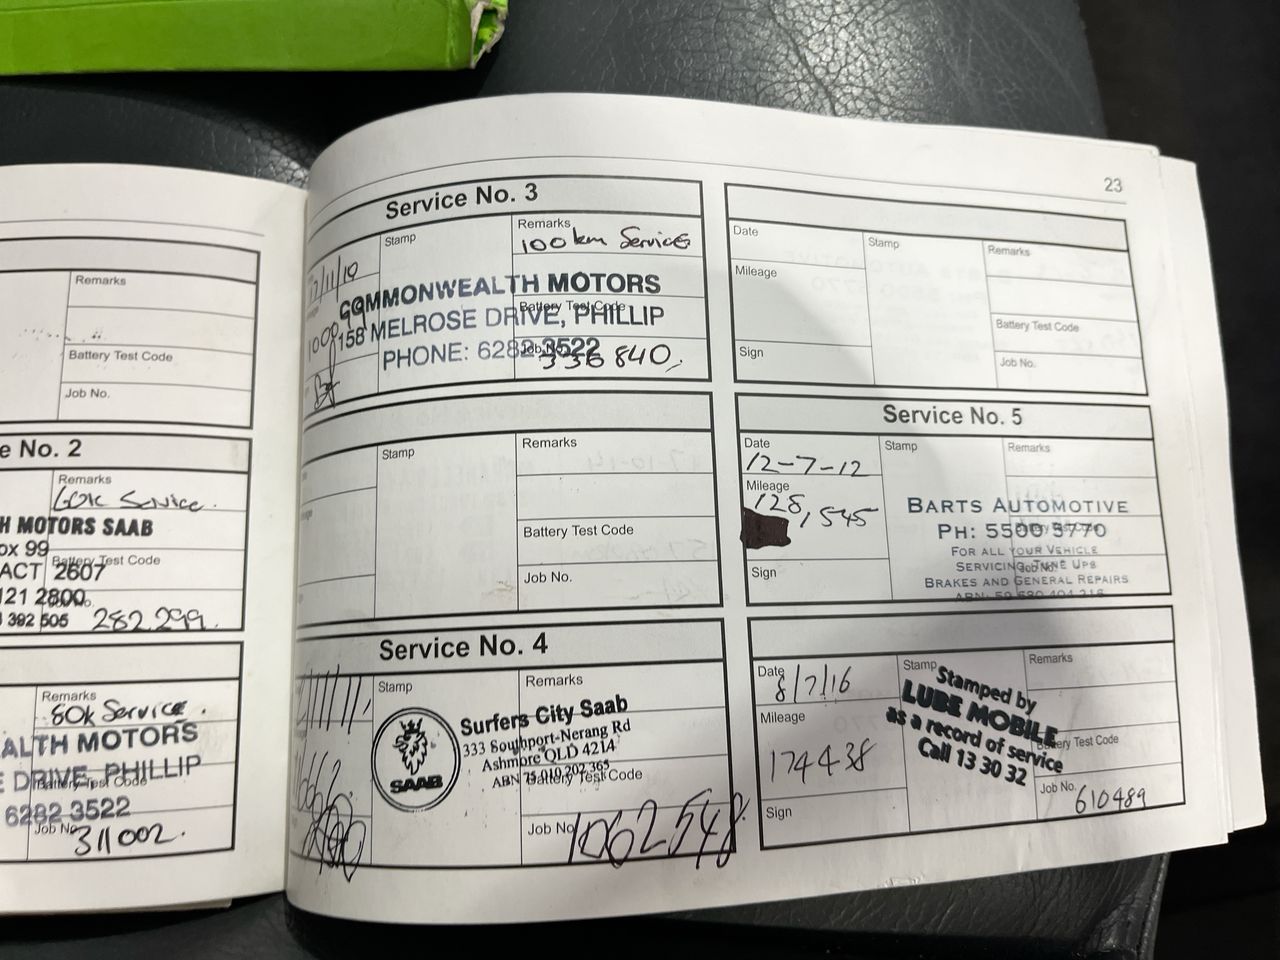 Remarks
Battery Test Code
Job No.
e No. 2
Remarks
60k Service.
H MOTORS SAAB
ox 99
Battery Test Code
ACT 2607
121 2800
392 505
282299.
Remarks
80k Service.
ALTH MOTORS
E DRIVE, PHILLIP
Battery Test Code
6282 3522
Job No.
311002.
Service No. 3
Stamp
Remarks
100km Service
/11/10
COMMONWEALTH MOTORS
Battery Test Code
158 MELROSE DRIVE, PHILLIP
PHONE: 6282 3522
Job No.
336840.
Stamp
Remarks
Battery Test Code
Job No.
Service No. 4
Stamp
Remarks
SAAB
Surfers City Saab
333 Southport-Nerang Rd
Ashmore QLD 4214
ABN 75 010 202 365
Battery Test Code
Job No.
1062548
23
Date
Stamp
Remarks
Mileage
Battery Test Code
Sign
Job No.
Service No. 5
Date
Stamp
Remarks
12-7-12
Mileage
128,545
BARTS AUTOMOTIVE
PH: 5500 5770
Battery Test Code
FOR ALL YOUR VEHICLE
SERVICING, TUNE UPS
Job No.
BRAKES AND GENERAL REPAIRS
ABN: 50 590 404 216
Sign
Date
8/7/16
Stamp
Remarks
Mileage
174438
Stamped by
LUBE MOBILE
as a record of service
Call 13 30 32
Battery Test Code
Job No.
610489
Sign